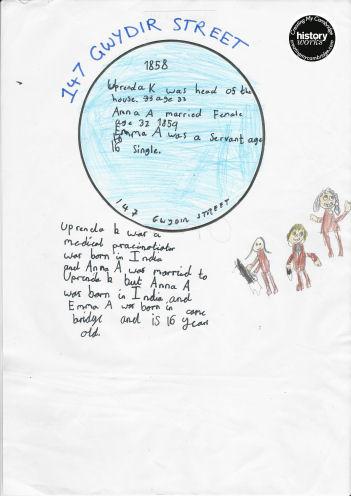 147 GWYDIR STREET
Creating My Cambridge
history
works
creatingmycambridge.com
1858
Uprenda K was head of the
house. as age 33
Anna A married Female
age 32 1859
Emma A was a servant age
16 Single.
147 GWYDIR STREET
Uprenda k was a
medical pracinotiotor
was born in India
and Anna A was married to
Uprenda k but Anna A
was born in India and
Emma A was born in came
bridge and is 16 year
old.